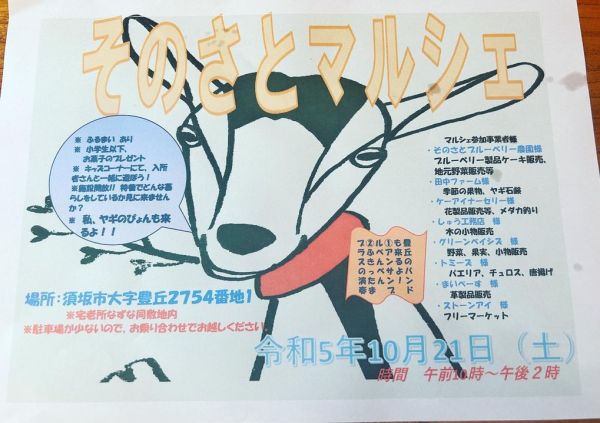 そのさとマルシェ
※ ふるまい あり
※ 小学生以下、
お菓子のプレゼント
※ キッズコーナーにて、入所
者さんと一緒に遊ぼう！
※施設開放!! 特養でどんな暮
らしをしているか見に来ません
か？
※ 私、ヤギのぴょんも来
るよ！！
マルシェ参加事業者様
・そのさとブルーベリー農園様
ブルーベリー製品ケーキ販売、
地元野菜販売等
・田中ファーム様
季節の果物、ヤギ石鹸
・ケーアイナーセリー様
花製品販売等、メダカ釣り
・しゅう工務店 様
木の小物販売
・グリーンベイシズ 様
野菜、果実、小物販売
・トミーズ 様
パエリア、チュロス、唐揚げ
・まいべーす 様
革製品販売
・ストーンアイ 様
フリーマーケット
豊丘のパンプ
も来るよ！ド
①
ルペんさんま
②
プラスの演奏
場所：須坂市大字豊丘2754番地1
※宅老所なずな同敷地内
※駐車場が少ないので、お乗り合わせでお越しください。
令和5年10月21日（土）
時間 午前10時～午後２時